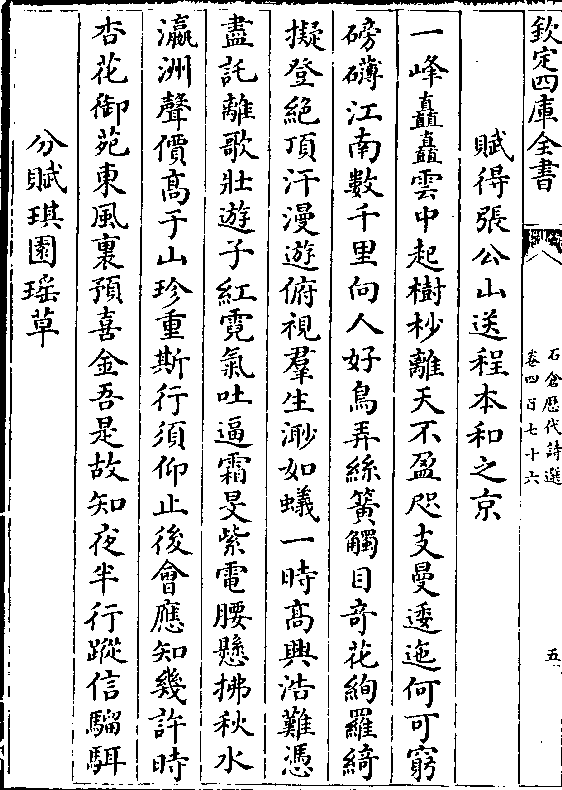 欽定四庫全書
石倉歷代詩選
卷四百七十六
五
賦得張公山送程本和之京
一峰矗矗雲中起樹杪離天不盈咫支蔓逶迤何可窮
磅礴江南數千里向人好鳥弄絲簧觸目奇花絢羅綺
擬登絕頂汗漫遊俯視羣生渺如蟻一時髙興浩難憑
盡託離歌壯遊子紅霓氣吐逼霜旻紫電腰懸拂秋水
瀛洲聲價髙于山珍重斯行須仰止後會應知幾許時
杏花御苑東風裏預喜金吾是故知夜半行蹤信騮駬
分賦琪園瑶草